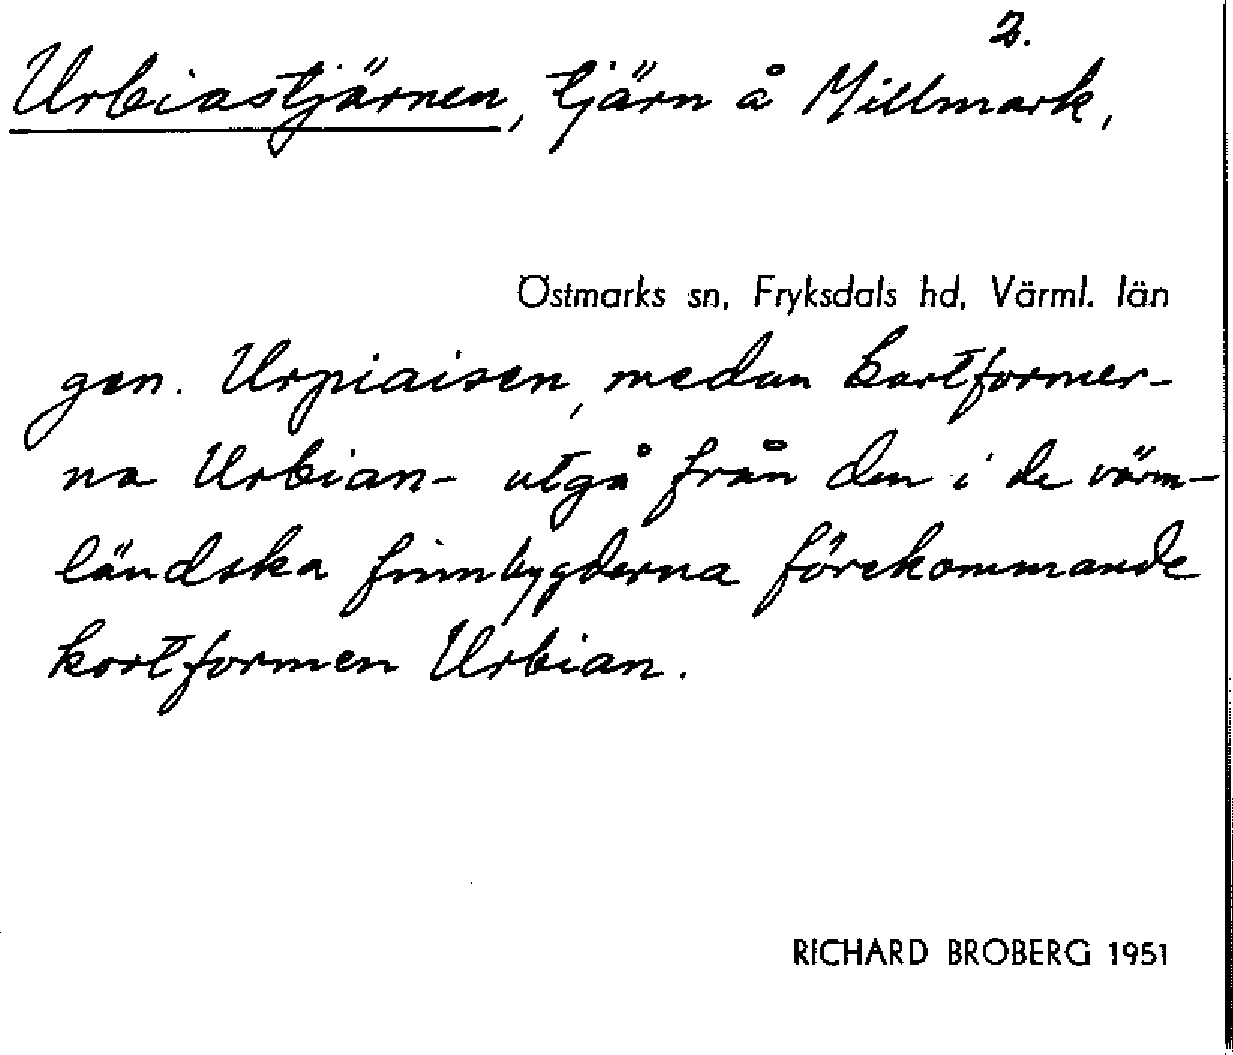 2.
Urbiastjärnen, tjärn å Millmark,
Östmarks sn, Fryksdals hd, Värml. län
gen. Urpiaisen, medan kortformer-
na Urbian- utgå från den i de värm-
ländska finnbygderna förekommande
kortformen Urbian.
RICHARD BROBERG 1951